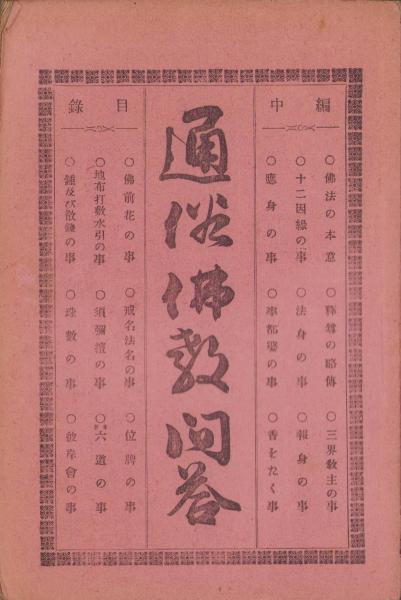 編中
○佛法の本意 ○釋尊の略傳 ○三界敎主の事
○十二因緣の事 ○法身の事 ○報身の事
○應身の事 ○率都婆の事 ○香をたく事
通俗佛敎問答
目錄
○佛前花の事 ○戒名法名の事 ○位牌の事
○地布打敷水引の事 ○須彌壇の事 ○六道の事
○鍾及び散錢の事 ○珠數の事 ○彼岸會の事